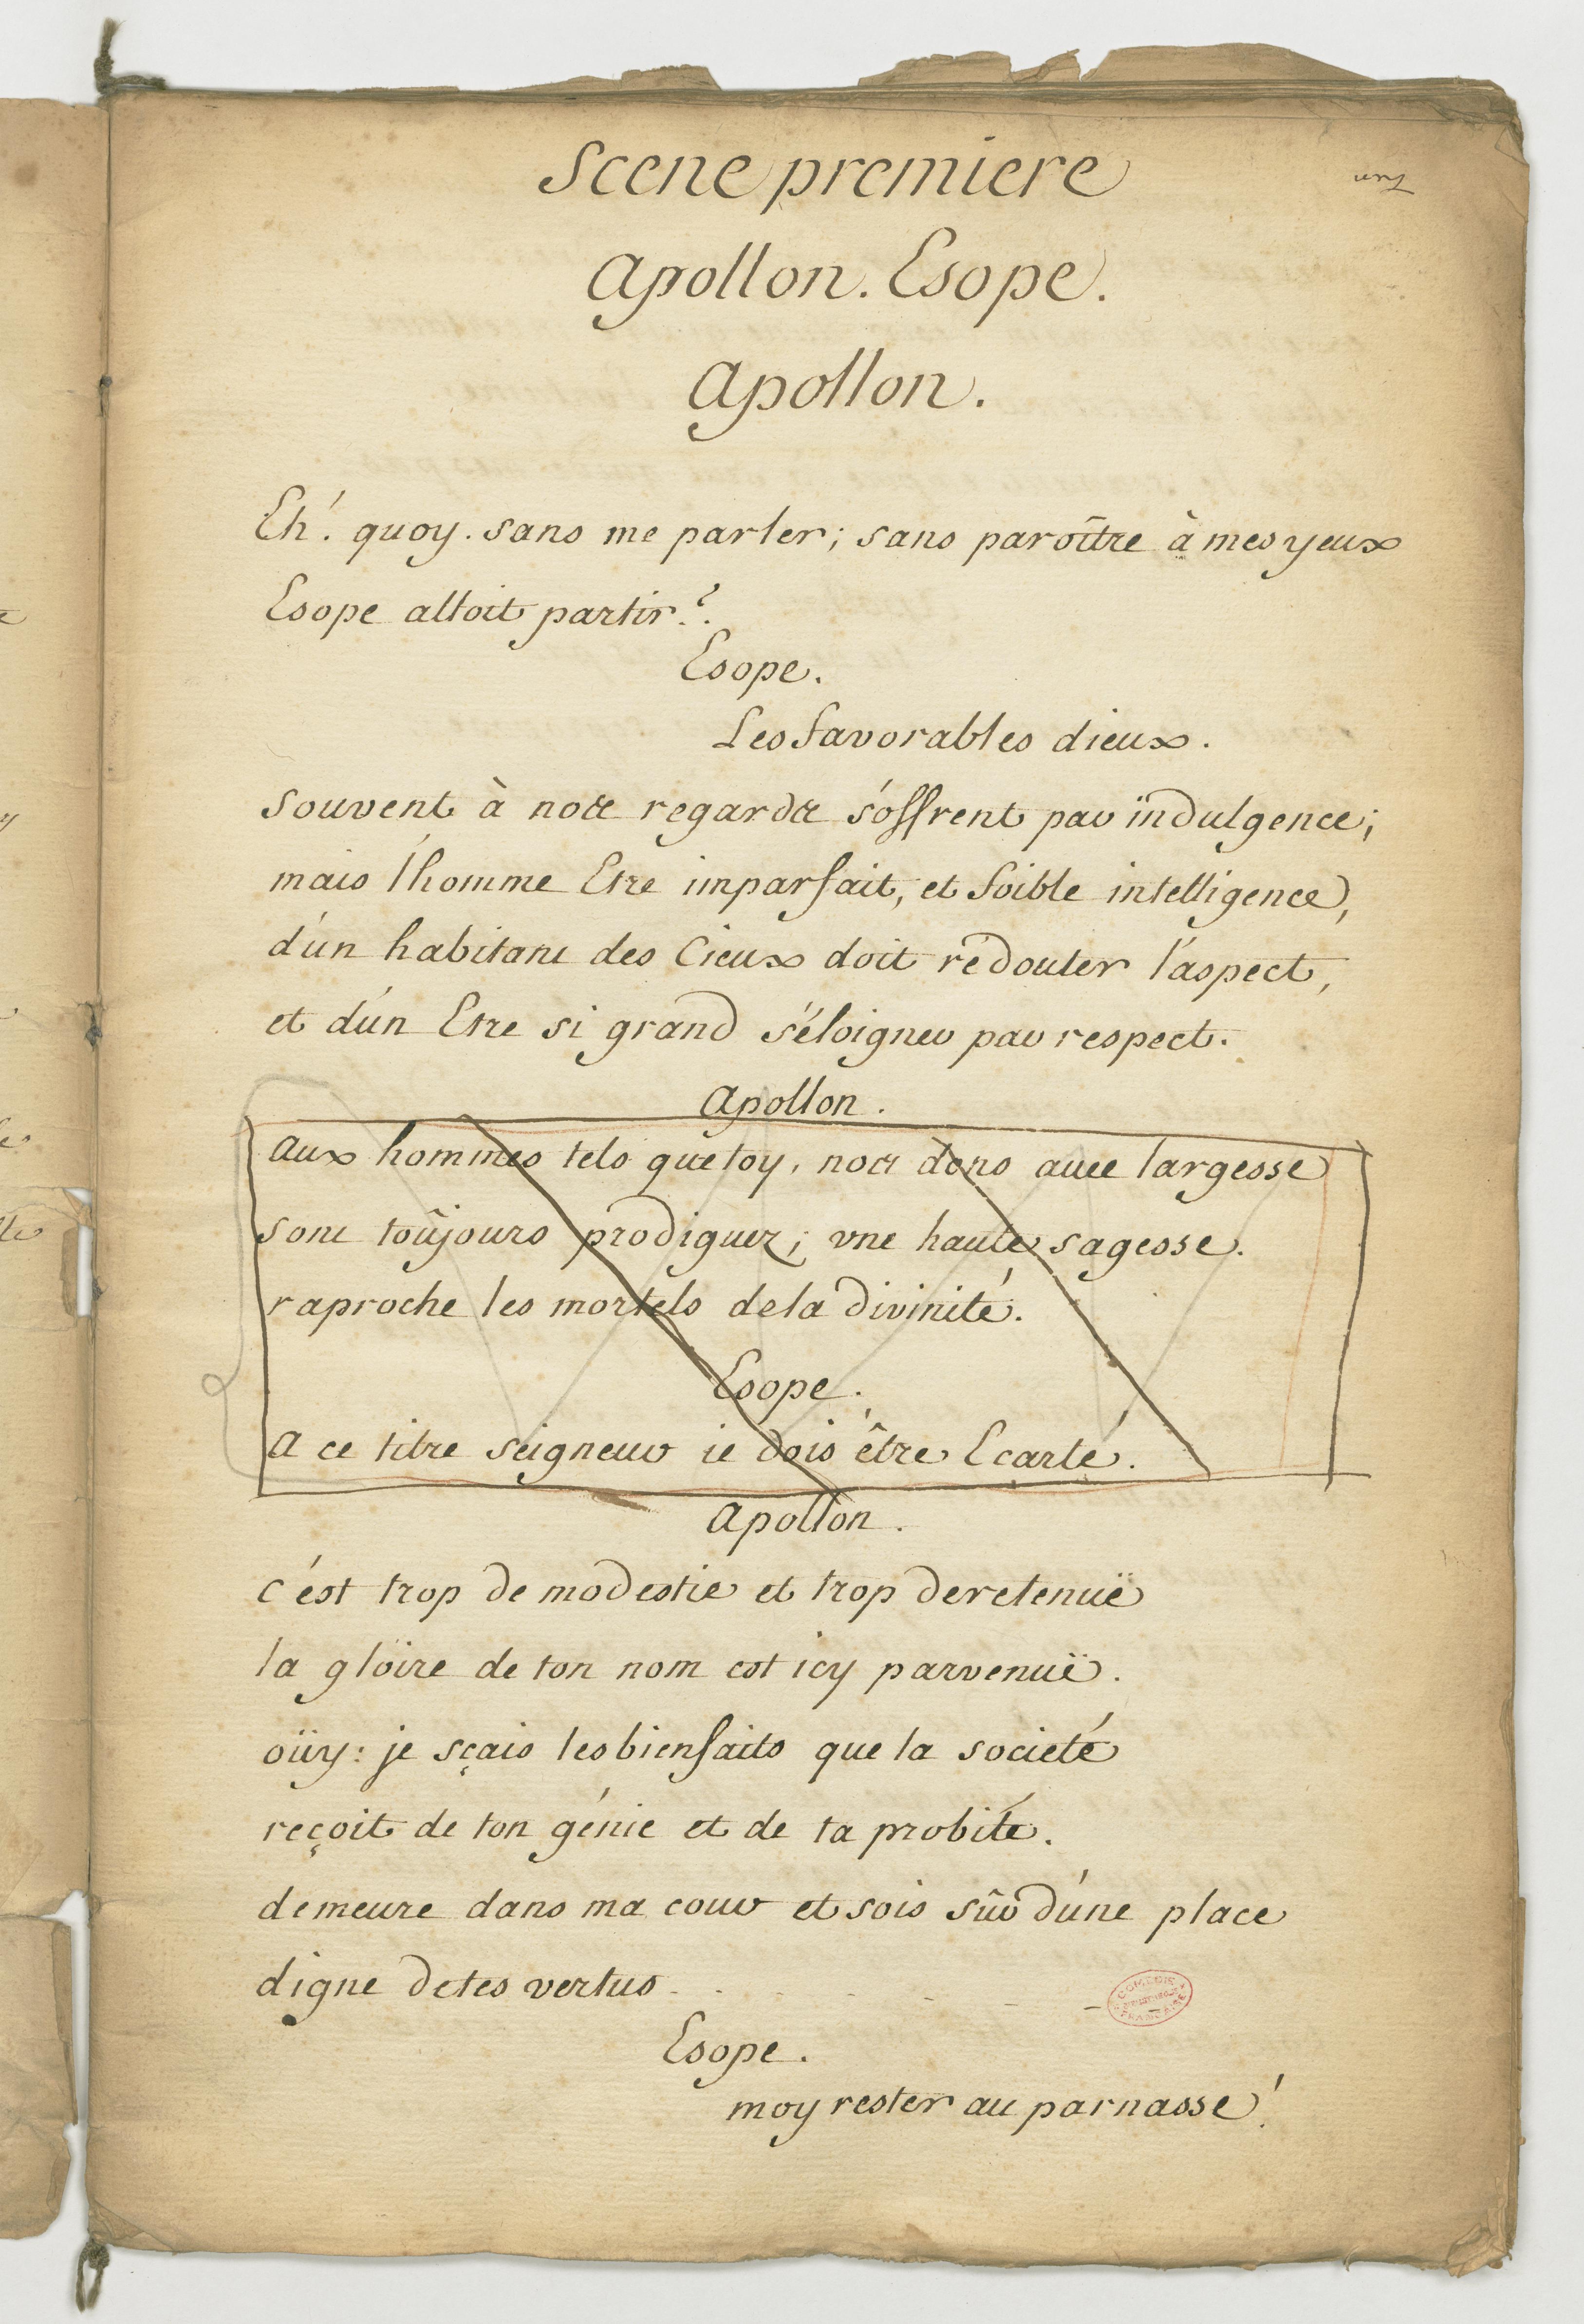 Scene premiere
un
Apollon. Esope.
Apollon.
Eh! quoy. sans me parler; sans paroître à mes yeux
Esope alloit partir?
Esope.
Les favorables dieux.
souvent à nos regards s'offrent par indulgence;
mais l'homme Etre imparfait, et foible intelligence,
d'un habitant des Cieux doit rédouter l'aspect,
et d'un Etre si grand s'éloigner par respect.
Apollon.
aux hommes tels que toy, nos dons avec largesse
sont toûjours prodiguez; vne haute sagesse.
raproche les mortels dela divinité.
Esope.
A ce titre seigneur je dois être Ecarté.
Apollon.
c'est trop de modestie et trop deretenuë
la gloire de ton nom est icy parvenuë.
oüy: je sçais les bienfaits que la societé
reçoit de ton génie et de ta probité.
demeure dans ma cour et sois sûr d'une place
digne detes vertus - . . . - - -
COMEDIE FRANCAISE
Esope.
moy rester au parnasse!